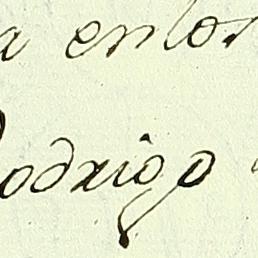 a en los
Rodrigo